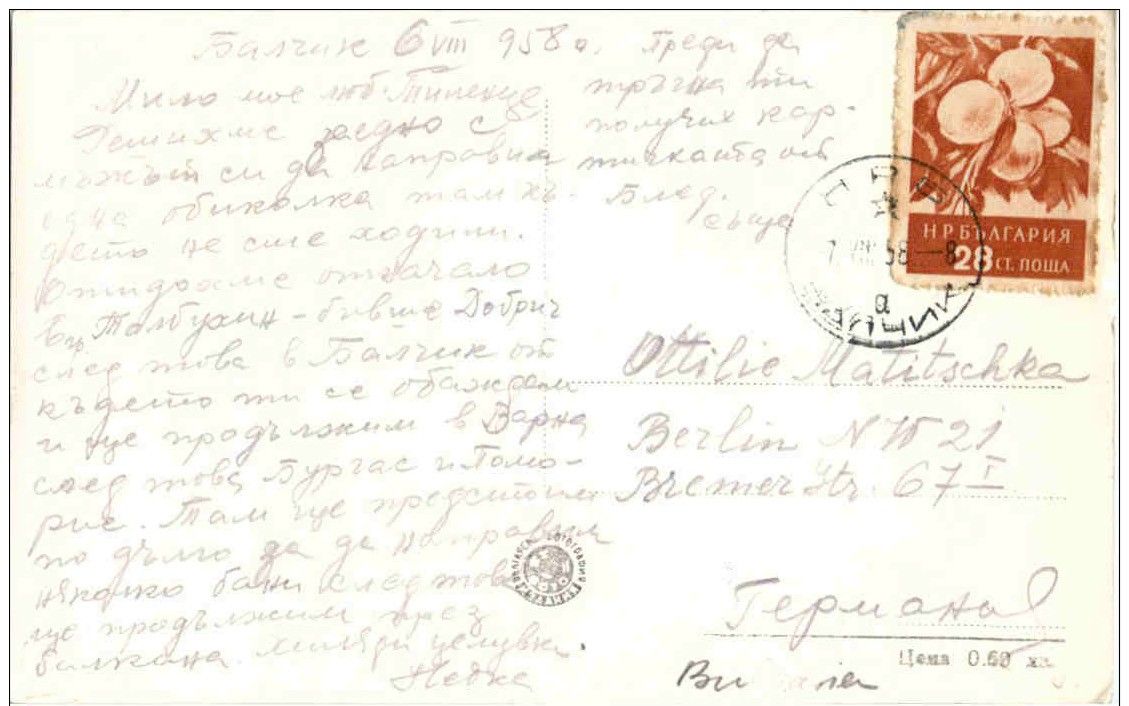 Балчик 6 VIII 958 г.
Мило мое люб. Тиленце
Решихме заедно с
мъжът си да направим
една обиколка там къ-
дето не сме ходили.
Отидохме отначало
в гр. Толбухин – бивше Добрич
след това в Балчик от
където ти се обаждам
и ще продължим в Варна
след това Бургас и Помо-
рие. Там ще предстоим
по дълго да да направим
няколко бани след това
ще продължим през
балкана. Милярди целувки.
Недка
Преди да
тръгна ти
получих кар-
тичката от
Блед.
съща
НР БЪЛГАРИЯ
28 СТ. ПОЩА
58 – 8
а
Ottilie Matitschka
Berlin NW 21
Bremer Str. 67 I
Германия
Цена 0.60 лв.